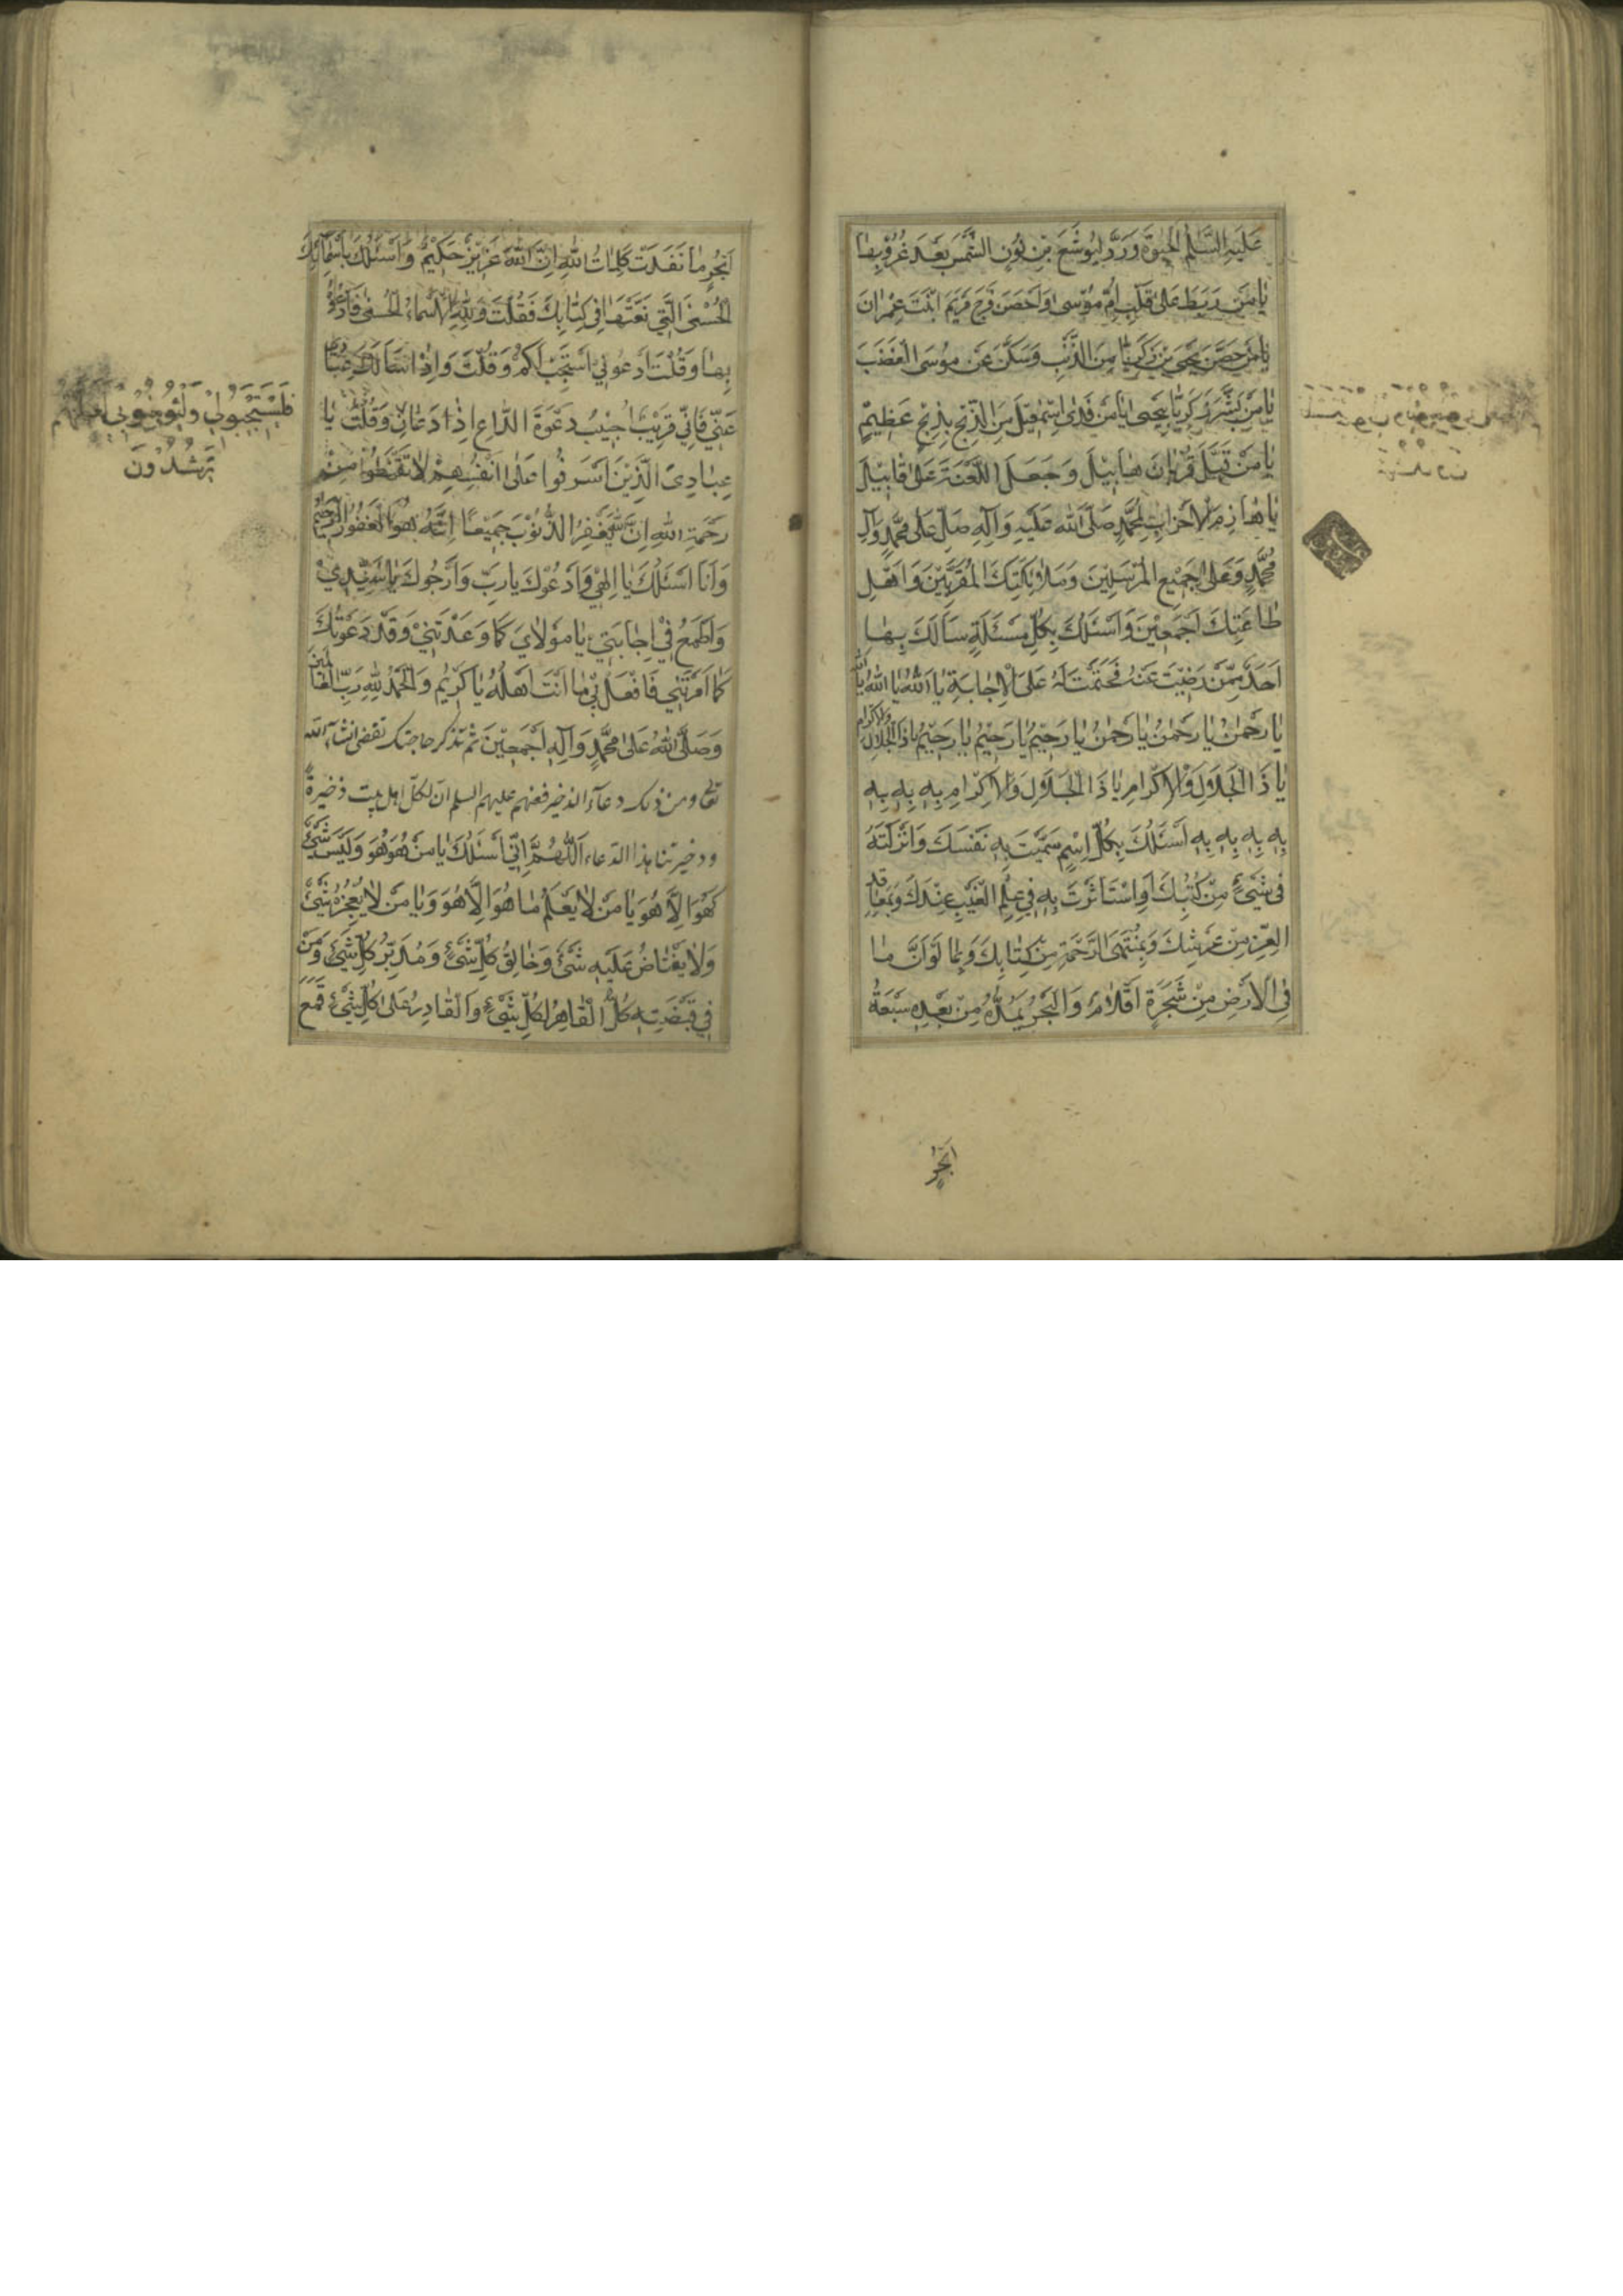 عَلَيْهِ السَّلٰمُ الْحَيٰوةَ وَرَدَّ لِيُوشَعَ بْنِ نُونٍ الشَّمْسَ بَعْدَ غُرُوبِهٰا
يٰا مَنْ رَبَطَ عَلىٰ قَلْبِ اُمِّ مُوْسىٰ وَاَحْصَنَ فَرْجَ مَرْيَمَ ابْنَتَ عِمْرٰانَ
يٰا مَنْ حَصَّنَ يَحْيَى بْنَ زَكَرِيّٰا مِنَ الذَّنْبِ وَسَكَّنَ عَنْ مُوسَى الْغَضَبَ
يٰا مَنْ بَشَّرَ زَكَرِيّٰا بِيَحْيىٰ يٰا مَنْ فَدىٰ اِسْمٰعِيْلَ مِنَ الذَّبْحِ بِذِبْحٍ عَظِيْمٍ
يٰا مَنْ قَبِلَ قُرْبٰانَ هٰابِيْلَ وَجَعَلَ اللَّعْنَةَ عَلىٰ قٰابِيْلَ
يٰا هٰازِمَ الْاَحْزٰابِ لِمُحَمَّدٍ صَلَّى اللهُ عَلَيْهِ وَآلِهِ صَلِّ عَلىٰ مُحَمَّدٍ وَآلِ
مُحَمَّدٍ وَعَلىٰ جَمِيْعِ الْمُرْسَلِيْنَ وَمَلٰائِكَتِكَ الْمُقَرَّبِيْنَ وَاَهْلِ
طٰاعَتِكَ اَجْمَعِيْنَ وَاَسْئَلُكَ بِكُلِّ مَسْئَلَةٍ سَاَلَكَ بِهٰا
اَحَدٌ مِمَّنْ رَضِيْتَ عَنْهُ فَحَتَمْتَ لَهُ عَلَى الْاِجٰابَةِ يٰا اَللهُ يٰا اللهُ يٰا اللهُ
يٰا رَحْمٰنُ يٰا رَحْمٰنُ يٰا رَحْمٰنُ يٰا رَحِيْمُ يٰا رَحِيْمُ يٰا رَحِيْمُ يٰا ذَا الْجَلٰالِ وَالْاِكْرٰامِ
يٰا ذَا الْجَلٰالِ وَالْاِكْرٰامِ يٰا ذَا الْجَلٰالِ وَالْاِكْرٰامِ بِهِ بِهِ بِهِ
بِهِ بِهِ بِهِ بِهِ اَسْئَلُكَ بِكُلِّ اِسْمٍ سَمَّيْتَ بِهِ نَفْسَكَ وَاَنْزَلْتَهُ
فِى شَيْءٍ مِنْ كُتُبِكَ اَوِ اسْتَاْثَرْتَ بِهِ فِي عِلْمِ الْغَيْبِ عِنْدَكَ وَبِمَعٰاقِدِ
الْعِزِّ مِنْ عَرْشِكَ وَبِمُنْتَهَى الرَّحْمَةِ مِنْ كِتٰابِكَ وَبِمٰا لَوْ اَنَّ مٰا
فِى الْاَرْضِ مِنْ شَجَرَةٍ اَقْلٰامٌ وَالْبَحْرُ يَمُدُّهُ مِنْ بَعْدِهِ سَبْعَةُ
اَبْحُرٍ
اَبْحُرٍ مٰا نَفِدَتْ كَلِمٰاتُ اللهِ اِنَّ اللهَ عَزِيْزٌ حَكِيْمٌ وَاَسْئَلُكَ بِاَسْمٰائِكَ
الْحُسْنَى الَّتِي نَعَتَّهٰا فِي كِتٰابِكَ فَقُلْتَ وَلِلّٰهِ الْاَسْمٰاءُ الْحُسْنىٰ فَادْعُوهُ
بِهٰا وَقُلْتَ ادْعُونِيْ اَسْتَجِبْ لَكُمْ وَقُلْتَ وَاِذٰا سَاَلَكَ عِبٰادِي
عَنِّي فَاِنِّي قَرِيْبٌ اُجِيْبُ دَعْوَةَ الدّٰاعِ اِذٰا دَعٰانِ وَقُلْتَ يٰا
فَلْيَسْتَجِيْبُوْا لِيْ وَلْيُؤْمِنُوْا بِيْ لَعَلَّهُمْ
يَرْشُدُوْنَ
عِبٰادِيَ الَّذِيْنَ اَسْرَفُوا عَلىٰ اَنْفُسِهِمْ لٰا تَقْنَطُوْا مِنْ
رَحْمَةِ اللهِ اِنَّ اللهَ يَغْفِرُ الذُّنُوْبَ جَمِيْعًا اِنَّهُ هُوَ الْغَفُوْرُ الرَّحِيْمُ
وَاَنَا اَسْئَلُكَ يٰا اِلٰهِيْ وَاَدْعُوْكَ يٰا رَبِّ وَاَرْجُوكَ يٰا سَيِّدِيْ
وَاَطْمَعُ فِيْ اِجٰابَتِيْ يٰا مَوْلٰايَ كَمٰا وَعَدْتَنِيْ وَقَدْ دَعَوْتُكَ
كَمٰا اَمَرْتَنِي فَافْعَلْ بِيْ مٰا اَنْتَ اَهْلُهُ يٰا كَرِيْمُ وَالْحَمْدُ لِلّٰهِ رَبِّ الْعٰالَمِيْنَ
وَصَلَّى اللهُ عَلىٰ مُحَمَّدٍ وَآلِهِ اَجْمَعِيْنَ ثم تذكر حاجتك تقضى انشاء الله
تعالى ومن ذلك دعاء الذخير فعنهم عليهم السلم ان لكل اهل بيت ذخيرةً
وذخيرتنا هذا الدعاء اَللّٰهُمَّ اِنِّي اَسْئَلُكَ يٰا مَنْ هُوَ هُوَ وَلَيْسَ شَيْءٌ
كَهُوَ اِلَّا هُوَ يٰا مَنْ لٰا يَعْلَمُ مٰا هُوَ اِلَّا هُوَ وَيٰا مَنْ لٰا يُعْجِزُهُ شَيْءٌ
وَلٰا يَعْتٰاضُ عَلَيْهِ شَيْءٌ وَخٰالِقُ كُلِّ شَيْءٍ وَمُدَبِّرُ كُلِّ شَيْءٍ وَمَنْ
فِي قَبْضَتِهِ كُلُّ الْقٰاهِرُ لِكُلِّ شَيْءٍ وَالْقٰادِرُ عَلىٰ كُلِّ شَيْءٍ قَمَعَ